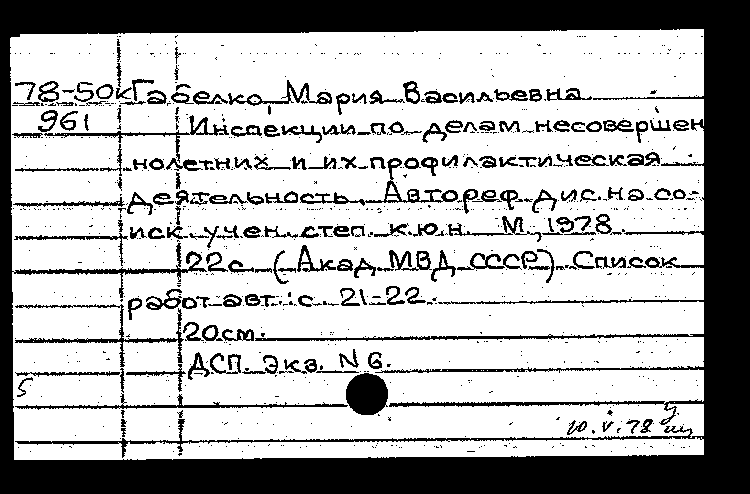 78-50к Габелко, Мария Васильевна
961 Инспекции по делам несовершен
нолетних и их профилактическая
деятельность. Автореф. дис. на со-
иск. учен. степ. к.ю.н. М., 1978.
22с. (Акад. МВД СССР) Список
работ авт.: с. 21-22.
20см.
ДСП. Экз. N 6.
5
10.V.78